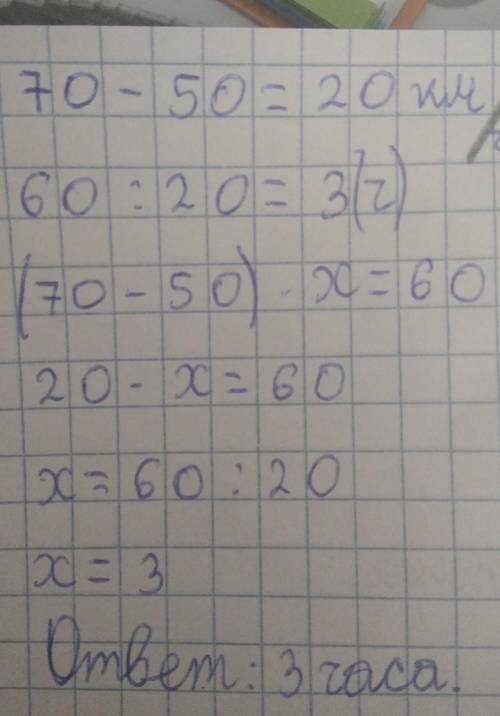 70 - 50 = 20 км
60 : 20 = 3(ч)
(70 - 50) · x = 60
20 - x = 60
x = 60 : 20
x = 3
Ответ: 3 часа.